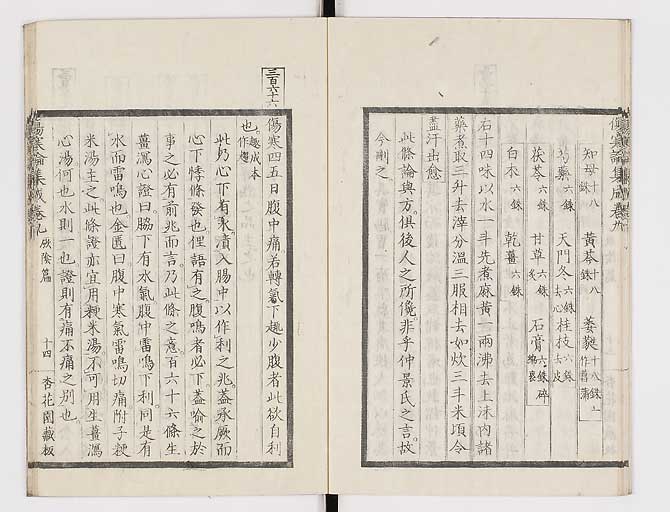 傷寒論集成卷九
知母十八銖 黃芩十八銖 萎蕤十八銖上作菖蒲
芍藥六銖 天門冬六銖去心 桂枝六銖去皮
茯苓六銖 甘草六銖炙 石膏六銖碎綿裹
白朮六銖 乾薑六銖
右十四味以水一斗先煮麻黃一兩沸去上沫內諸
藥煮取三升去滓分溫三服相去如炊三斗米頃令
盡汗出愈
此條論與方俱後人之所儳非乎仲景氏之言故
今刪之
三百六十六
傷寒四五日腹中痛若轉氣下趣少腹者此欲自利
也趣成本作趨
此乃心下有水漬入腸中以作利之兆蓋承厥而
心下悸條發也俚語有之腹鳴者必下蓋喻之於
事之必有前兆而言乃此條之意百六十六條生
薑瀉心證曰脇下有水氣腹中雷鳴下利同是有
水而雷鳴也金匱曰腹中寒氣雷鳴切痛附子粳
米湯主之此條證亦宜用粳米湯不可用生薑瀉
心湯何也水則一也證則有痛不痛之別也
傷寒論集成卷九 厥陰篇 十四 杏花園藏板